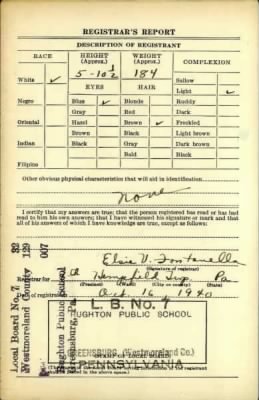 REGISTRAR'S REPORT
DESCRIPTION OF REGISTRANT
RACE HEIGHT (Approx.) WEIGHT (Approx.) COMPLEXION
5-10½ 184 Sallow
White ✓ EYES HAIR Light ✓
Negro Blue ✓ Blonde Ruddy
Gray Red Dark
Oriental Hazel Brown ✓ Freckled
Brown Black Light brown
Indian Black Gray Dark brown
Bald Black
Filipino
Other obvious physical characteristics that will aid in identification
None
I certify that my answers are true; that the person registered has read or has had
read to him his own answers; that I have witnessed his signature or mark and that
all of his answers of which I have knowledge are true, except as follows:
Elsie V. Fontanella
(Signature of registrar)
Hempfield Twp. Pa
Oct. 16 1940
L. B. NO. 7
HUGHTON PUBLIC SCHOOL
GREENSBURG, (Westmoreland Co.)
PENNSYLVANIA
STAMP OF LOCAL BOARD
Local Board No. 7 32
Westmoreland County 129
Hughton Public School 007
Greensburg, Pa.